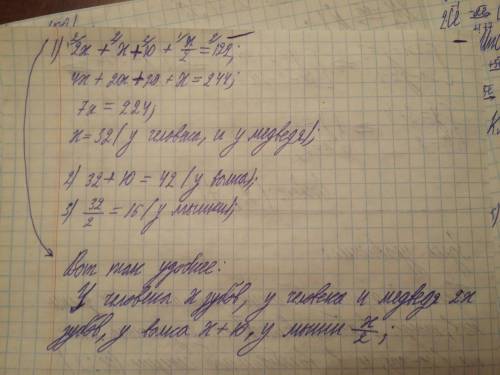 1) 2x + x + 10 + x/2 = 122;
4x + 2x + 20 + x = 244;
7x = 224;
x = 32 (у человека, и у медведя);
2) 32 + 10 = 42 (у волка);
3) 32/2 = 16 (у мышки);
Вот так удобнее:
У человека x зубов, у человека и медведя 2x
зубов, у волка x + 10, у мыши x/2;